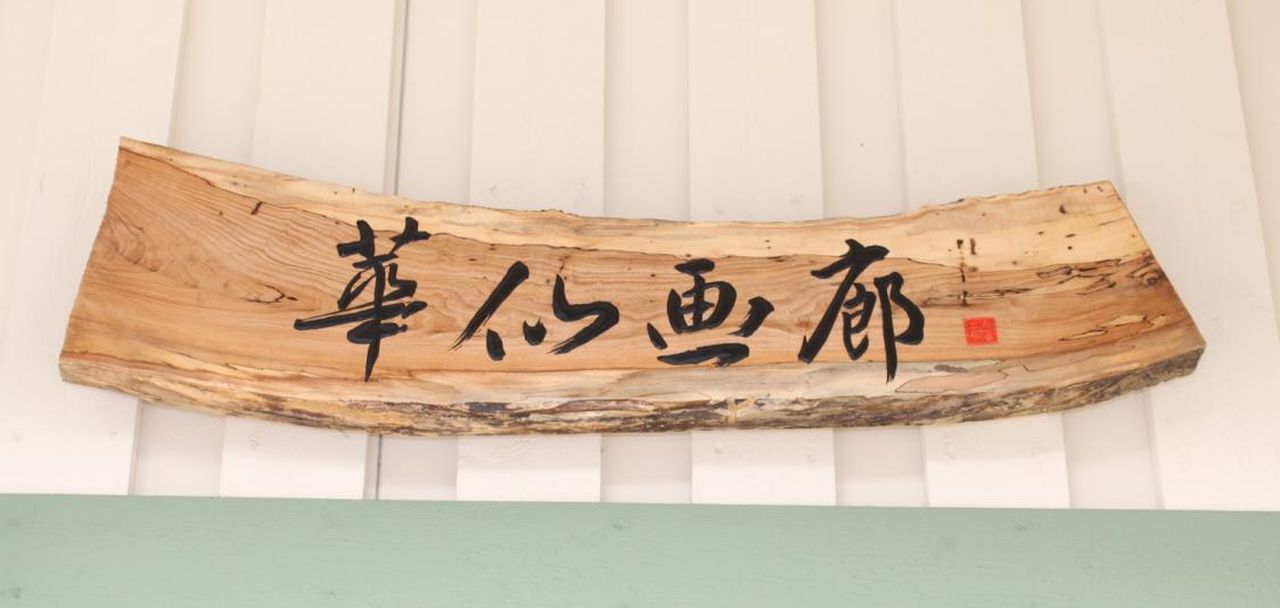 華仙画廊